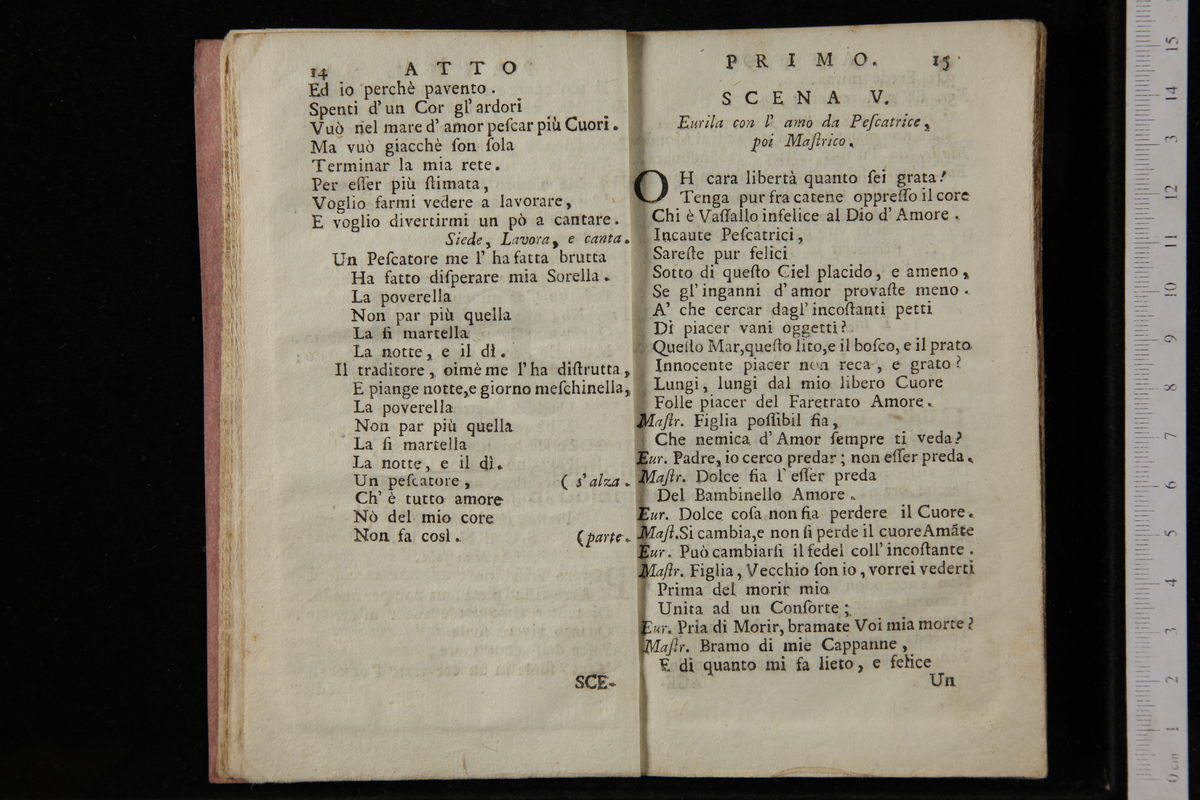 14 ATTO
Ed io perchè pavento.
Spenti d'un Cor gl'ardori
Vuò nel mare d'amor peſcar più Cuori.
Ma vuò giacchè ſon ſola
Terminar la mia rete.
Per eſſer più ſtimata,
Voglio farmi vedere a lavorare,
E voglio divertirmi un pò a cantare.
Siede, Lavora, e canta.
Un Peſcatore me l'ha fatta brutta
Ha fatto diſperare mia Sorella.
La poverella
Non par più quella
La ſi martella
La notte, e il dì.
Il traditore, oimè me l'ha diſtrutta,
E piange notte, e giorno meſchinella,
La poverella
Non par più quella
La ſi martella
La notte, e il dì.
Un peſcatore, (s'alza.
Ch'è tutto amore
Nò del mio core
Non fa così. (parte.
SCE-
PRIMO. 15
SCENA V.
Eurila con l'amo da Peſcatrice,
poi Maſtrico.
OH cara libertà quanto ſei grata!
Tenga pur fra catene oppreſſo il core
Chi è Vaſſallo infelice al Dio d'Amore.
Incaute Peſcatrici,
Sareſte pur felici
Sotto di queſto Ciel placido, e ameno,
Se gl'inganni d'amor provaſte meno.
A' che cercar dagl'incoſtanti petti
Di piacer vani oggetti?
Queſto Mar, queſto lito, e il boſco, e il prato
Innocente piacer non reca, e grato?
Lungi, lungi dal mio libero Cuore
Folle piacer del Faretrato Amore.
Maſtr. Figlia poſſibil fia,
Che nemica d'Amor ſempre ti veda?
Eur. Padre, io cerco predar; non eſſer preda.
Maſtr. Dolce fia l'eſſer preda
Del Bambinello Amore.
Eur. Dolce coſa non fia perdere il Cuore.
Maſt. Si cambia, e non ſi perde il cuore Amãte
Eur. Può cambiarſi il fedel coll'incoſtante.
Maſtr. Figlia, Vecchio ſon io, vorrei vederti
Prima del morir mio
Unita ad un Conſorte;
Eur. Pria di Morir, bramate Voi mia morte?
Maſtr. Bramo di mie Cappanne,
E di quanto mi fa lieto, e felice
Un
15
14
13
12
11
10
9
8
7
6
5
4
3
2
1
0 cm